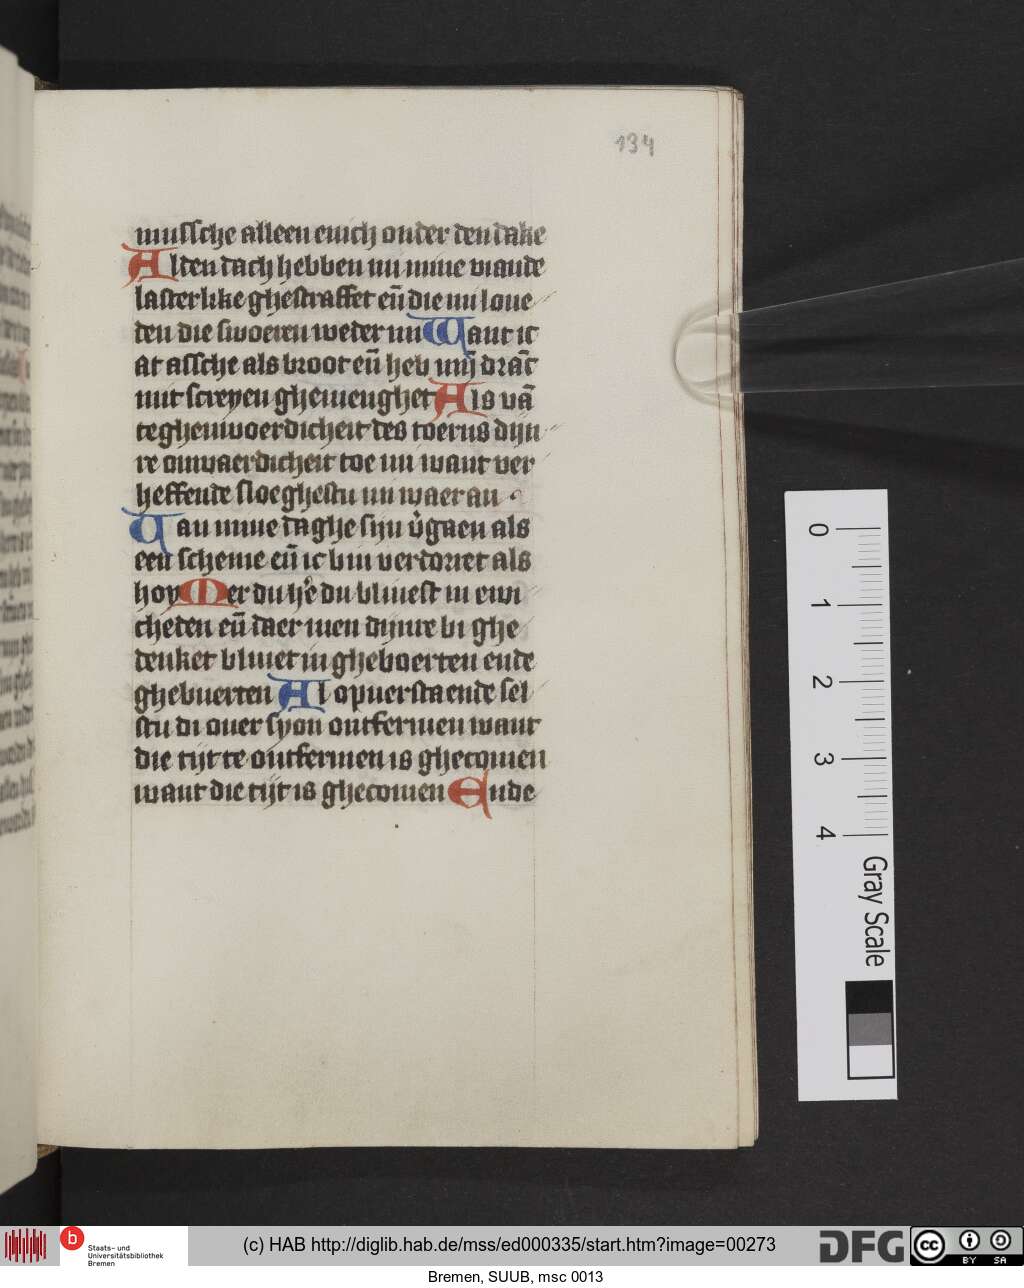 134
mussche alleen enich onder den dake
Alden dach hebben mi mine viande
lasterlike ghestraffet eñ die mi loue
den die swoeren weder mi Want ic
at assche als broot eñ heb mijn dranc
mit screyen ghemenghet Als vã
teghenwoerdicheit des toerns dijn
re onwaerdicheit toe mi want ver
heffende sloeghestu mi waer an
Van mine daghe sijn vͥgaen als
een scheme eñ ic bin verdorret als
hoy Mer du hͥe du bliuest in ewi
cheden eñ daer men dijnre bi ghe
denket bliuet in gheboerten ende
ghebuerten Al opuerstaende sel
stu di ouer syon ontfermen want
die tijt te ontfermen is ghecomen
want die tijt is ghecomen Ende
0
1
2
3
4
Gray Scale
b
Staats- und
Universitätsbibliothek
Bremen
(c) HAB http://diglib.hab.de/mss/ed000335/start.htm?image=00273
DFG
cc BY SA
Bremen, SUUB, msc 0013